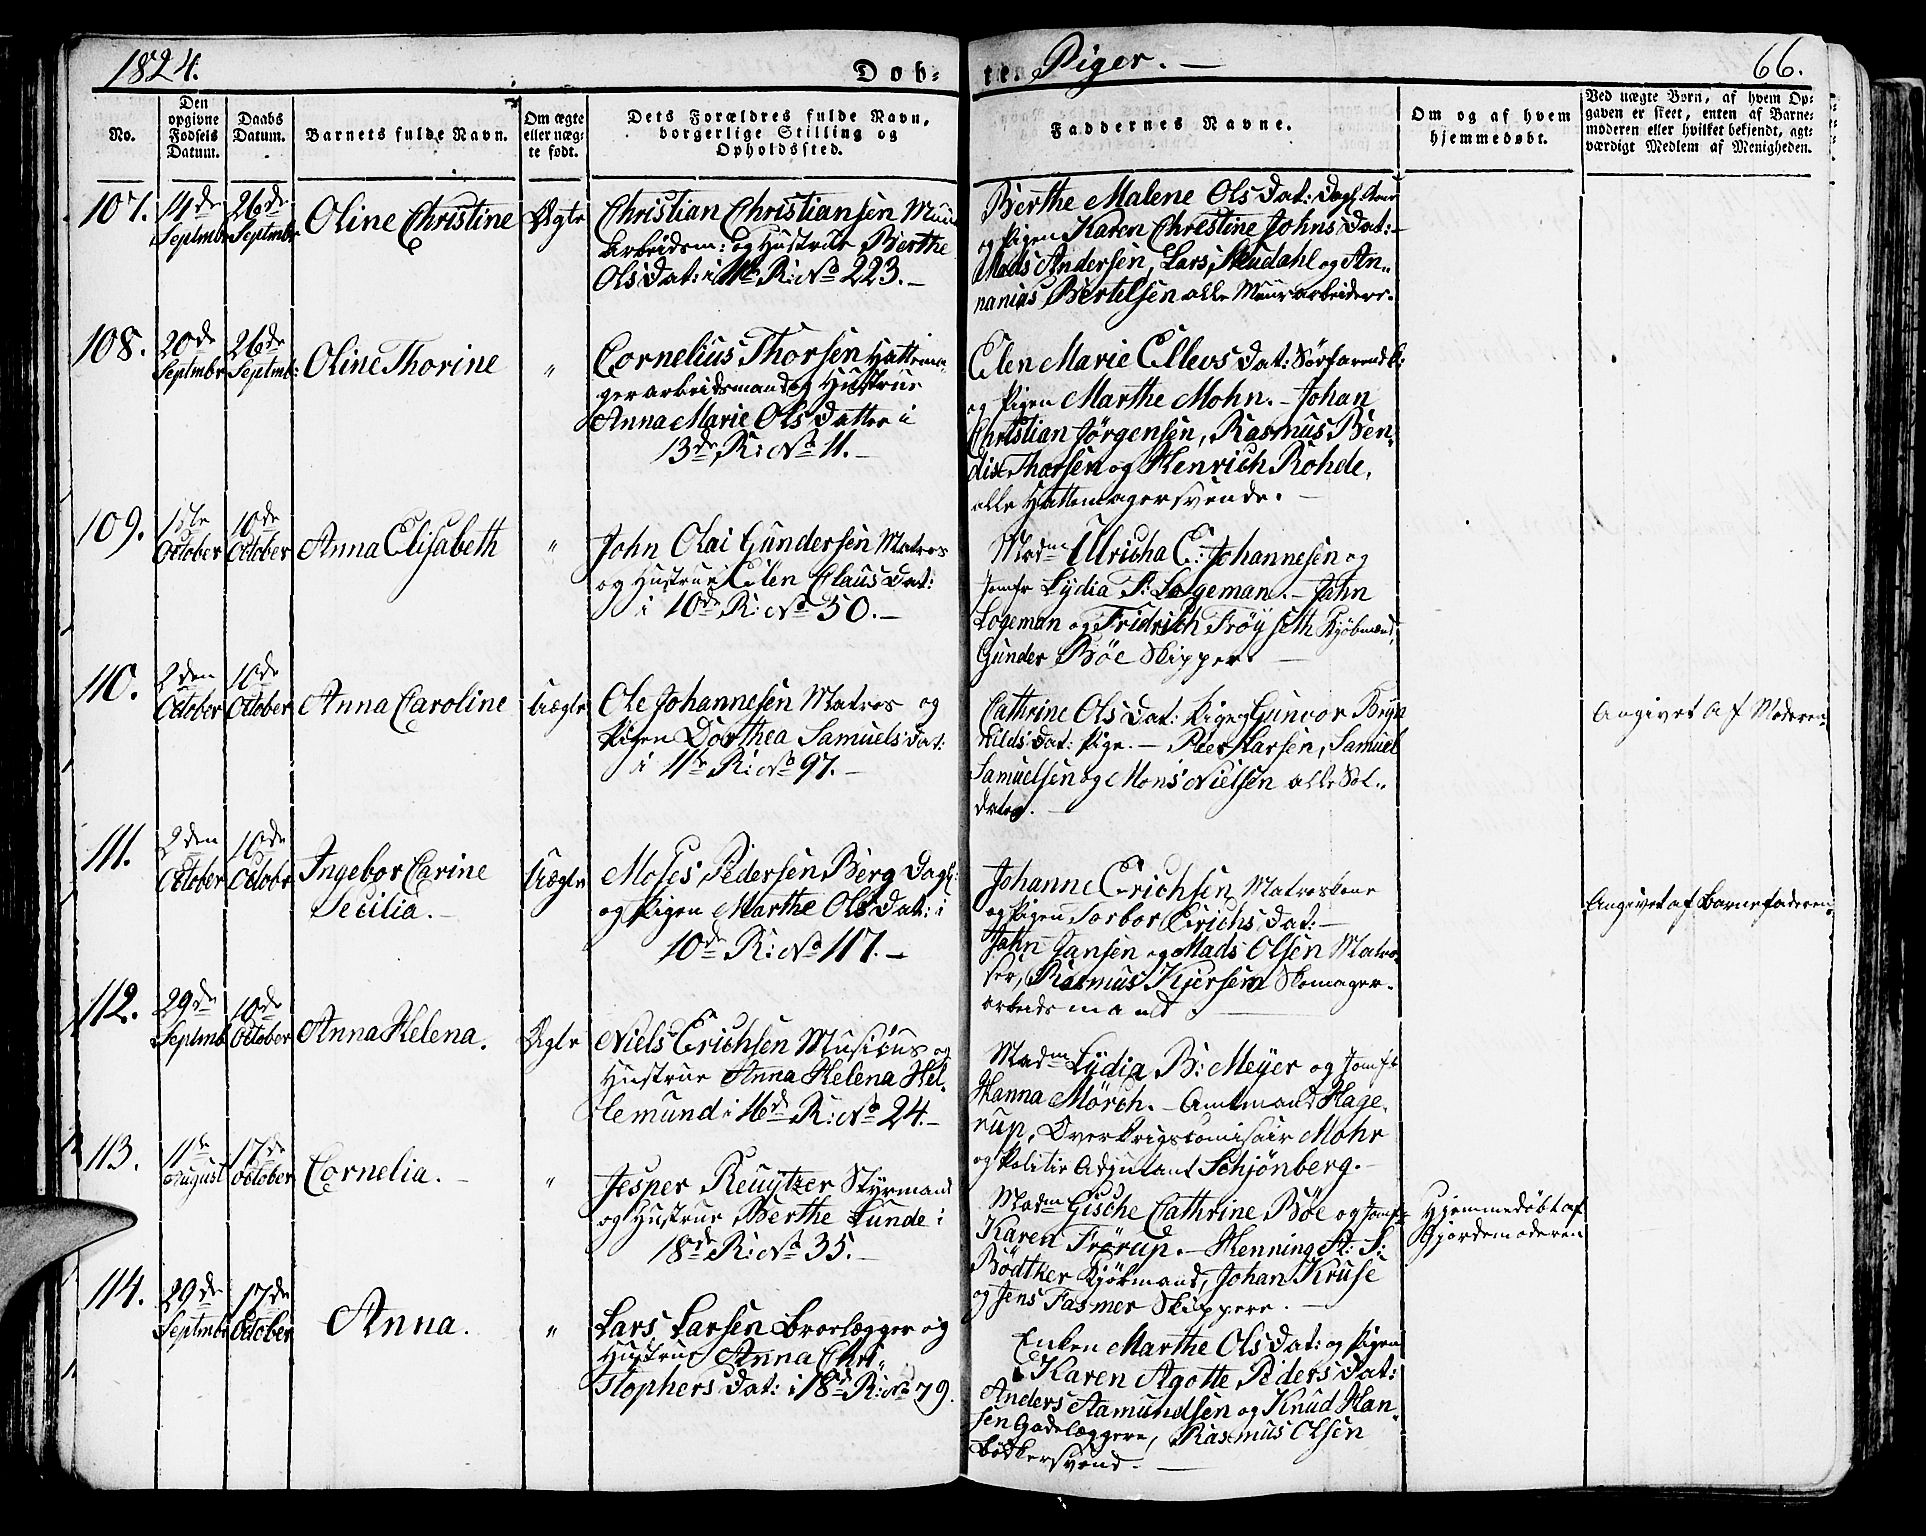 1824. Døb- te Piger. — 66.
No.
Den opgivne Fødsels Datum.
Daabs Datum.
Barnets fulde Navn.
Om ægte eller uægte født.
Dets Forældres fulde Navn, borgerlige Stilling og Opholdssted.
Faddernes Navne.
Om og af hvem hjemmedøbt.
Ved uægte Børn, af hvem Opgaven er skeet, enten af Barnemoderen eller hvilket bekjendt, agtværdigt Medlem af Menigheden.
107.
14de Septmbr
26de Septmbr
Oline Christine
Ægte
Christian Christiansen Muur
Arbeidsm: og Hustrue Berthe
Ols Dat: i 11te R: No 223. —
Berthe Malene Ols Dat:
og Pigen Karen Chrestine Johns Dat: —
Mads Andersen, Lars Skudahl og An-
nanias Bertelsen alle Muurarbeidere.
108.
20de Septmbr
26de Septmb:
Oline Thorine
"
Cornelius Thorsen Hattema-
gerarbeidsmand og Hustrue
Anna Marie Ols Datter i
13de R: No 11. —
Elen Marie Ellevs Dat: Sørfarend K:
og Pigen Marthe Mohn. — Johan
Christian Jörgensen, Rasmus Ben-
dix Thorsen og Henrich Rohde,
alle Hattemagersvende. —
109.
1ste October
10de October
Anna Elisabeth
"
John Olai Gundersen Matros
og Hustrue Elen Claus Dat:
i 10de R: No 50. —
Madm Ulricha C: Johannesen og
Jomfr Lydia P: Logeman. — Jahn
Logeman og Fridrich Fröyseth Kjøbmænd,
Gunder Böe Skipper. —
110.
2den October
10de October
Anna Caroline
Uægte
Ole Johannesen Matros og
Pigen Dorthea Samuels Dat:
i 11te R: No 97. —
Cathrine Ols Dat: Pige og Gunvor Bryn
hilds Dat: Pige. — Peer Larsen, Samuel
Samuelsen og Mons Nielsen alle Sol-
dater. —
Angivet af Moderen
111.
2den October
10de Octobr
Ingebor Carine
Secilia. —
Uægte
Moses Pedersen Berg Dagk:
og Pigen Marthe Ols Dat: i
10de R: No 117. —
Johanne Erichsen, Matroskone
og Pigen Sorbor Erichs Dat: —
Jahn Jansen og Mads Olsen Matro-
ser, Rasmus Kjersem Skomager-
arbeidsmand —
Angivet af Barnefaderen
112.
29de Septmb
10de October
Anna Helena.
Ægte
Niels Erichsen Musicus og
Hustrue Anna Helena Hel-
lemund i 16de R: No 24. —
Madm Lydia B: Meyer og Jomfr
Hanna Mörch. — Amtmand Hage-
rup, Overkrigscomisair Mohr
og Politie Adjutant Schjönberg. —
113.
11te August
17de October
Cornelia. —
"
Jesper Reuytzer Styrmand
og Hustrue Berthe Lunde i
18de R: No 35. —
Madm Gische Cathrine Böe og Jomfr
Karen Frörup. — Henning St: S:
Bödtker Kjøbmand, Johan Kruse
og Jens Fasmer Skippere. —
Hjemmedøbt af
Gjordemoderen
114.
29de Septmbr
17de October
Anna.
"
Lars Larsen Brolægger og
Hustrue Anna Chri-
stophers Dat: i 18de R: No 79.
Enken Marthe Ols Dat: og Pigen
Karen Agotte Peders Dat:
Anders Aamundsen og Knud Han-
sen Gadelæggere, Rasmus Olsen
Bødkersvend. —